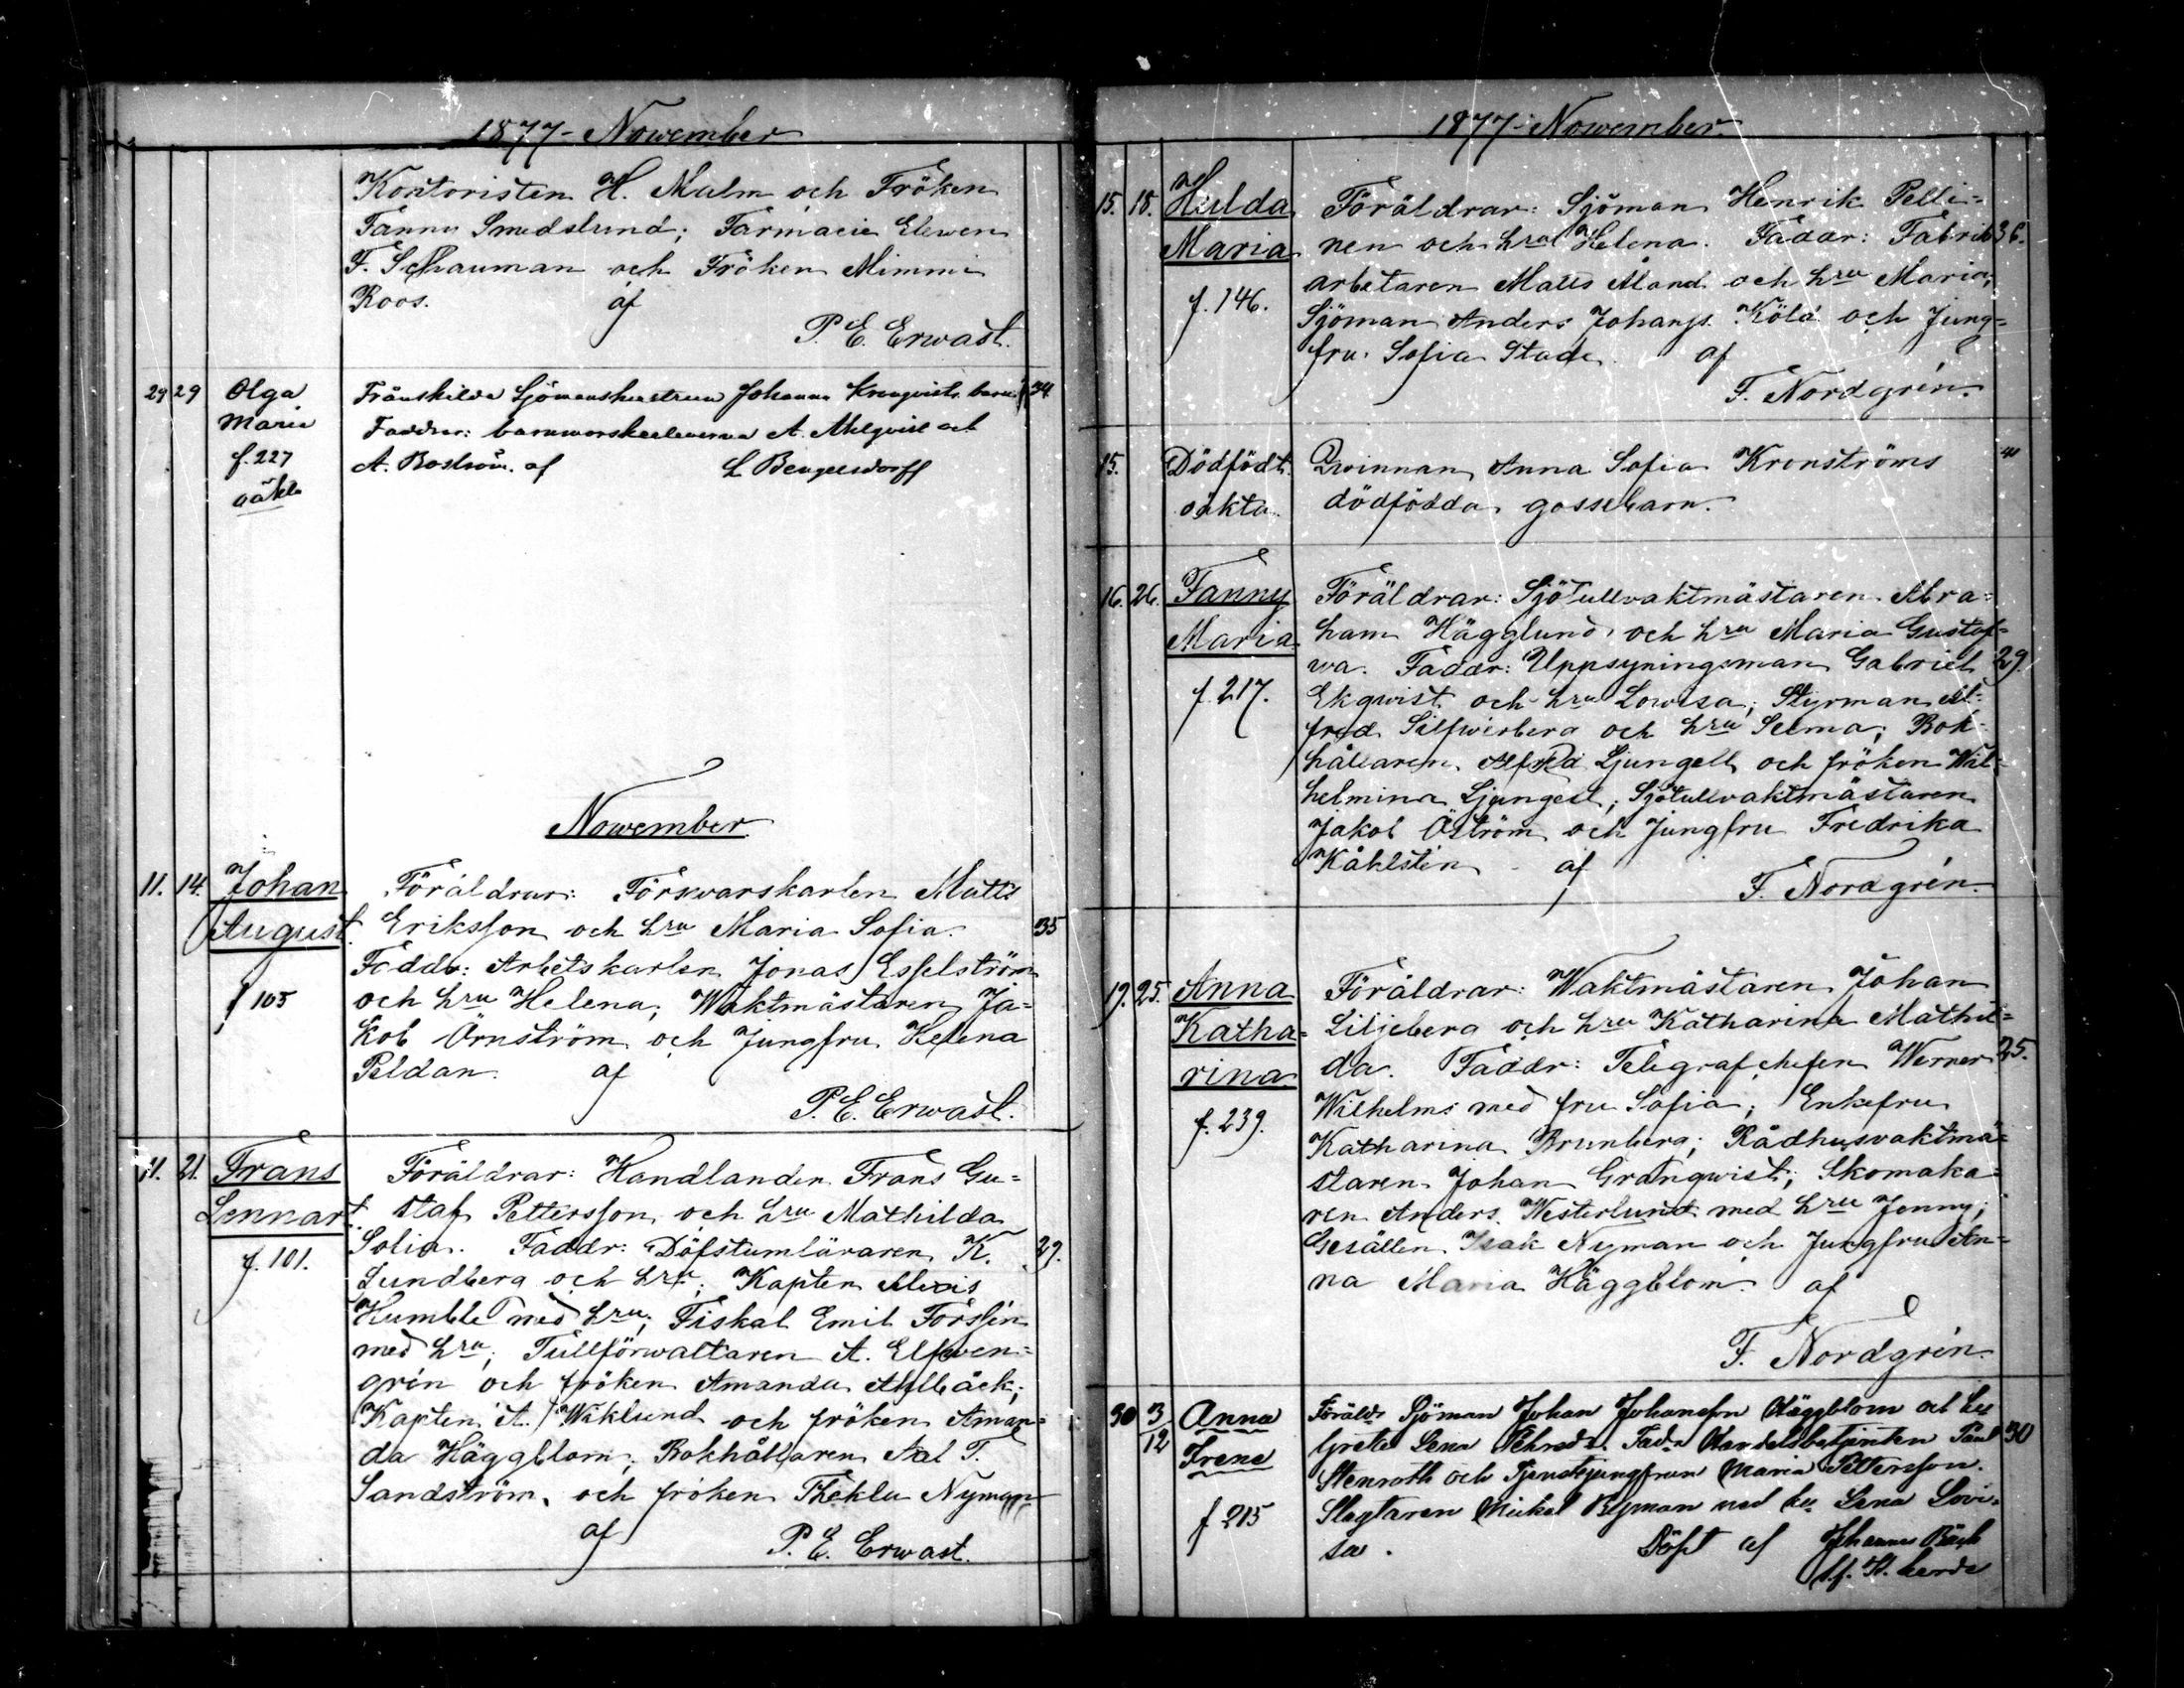 1877 - November
Kontoristen H. Malm och Fröken
Fanny Smedslund; Farmacie Elewen
F. Schauman och Fröken Mimmi
Roos. af
P. E. Erwast.
29 29 Olga Frånskilda Sjömanshustrun Johanna Kronqvists barn. 34
Maria Faddrar: barnmorskeeleverna A. Ahlqvist och
f. 227 A. Boström. af L Bengelsdorff
oäkta
November
11. 14. Johan Föräldrar: Försvarskarlen Matts
August. Eriksson och hru Maria Sofia. 35
Faddr: Arbetskarlen Jonas Esselström
f 105 och hru Helena; Waktmästaren Ja-
kob Örnström och Jungfru Helena
Peldan. af
P. E. Erwast.
11. 21. Frans Föräldrar: Handlanden Frans Gu-
Lennart. staf Pettersson och hru Mathilda
f. 101. Sofia. Faddr: Döfstumläraren K. 29.
Lundberg och hru; Kapten Alexis
Humble med hru; Fiskal Emil Forssén
med hru; Tullförwaltaren A. Elfwen-
grén och fröken Amanda Ahlbäck;
Kapten A. Wiklund och fröken Aman-
da Häggblom; Bokhållaren Axl F.
Sandström, och fröken Thekla Nyman
af P. E. Erwast.
1877 - November
15. 18. Hulda Föräldrar: Sjöman Henrik Pelli-
Maria nen och hru Helena. Faddr: Fabriks 36.
f. 146. arbetaren Matts Åland och hru Maria;
Sjöman Anders Johanss. Köld och Jung-
fru Sofia Stade. af
F. Nordgrén.
15. Dödfödt. Qvinnan Anna Sofia Kronströms
oäkta dödfödda gossebarn.
16. 26. Fanny Föräldrar: Sjötullvaktmästaren Abra-
Maria ham Hägglund och hru Maria Gustaf-
wa. Faddr: Uppsyningsman Gabriel 29.
f. 217. Ekqwist och hru Lowisa; Styrman Al-
fred Silfwerberg och hru Selma; Bok-
hållaren Alfred Ljungell och fröken Wil-
helmina Ljungell; Sjötullvaktmästaren
Jakob Öström och Jungfru Fredrika
Kåhlstén af
F. Nordgrén.
19. 25. Anna Föräldrar: Waktmästaren Johan
Katha- Liljeberg och hru Katharina Mathil-
rina da. Faddr: Telegrafchefen Werner 25.
f. 239. Wilhelms med fru Sofia; Enkefru
Katharina Brunberg; Rådhusvaktmä-
staren Johan Granqwist; Skomaka-
ren Anders Westerlund med hru Jenny;
Gesällen Isak Nyman och Jungfru An-
na Maria Häggblom. af
F. Nordgrén.
30 3/12 Anna Föräldr Sjöman Johan Johansson Häggblom och hu
Irene Greta Lena Fad. Handelsbetjenten Paul 30
Stenroth och Tjenstejungfrun Maria Pettersson.
f 215 Slagtaren Mickel Byman med hu Lena Lovi-
sa. Döpt af Johannes Bäck